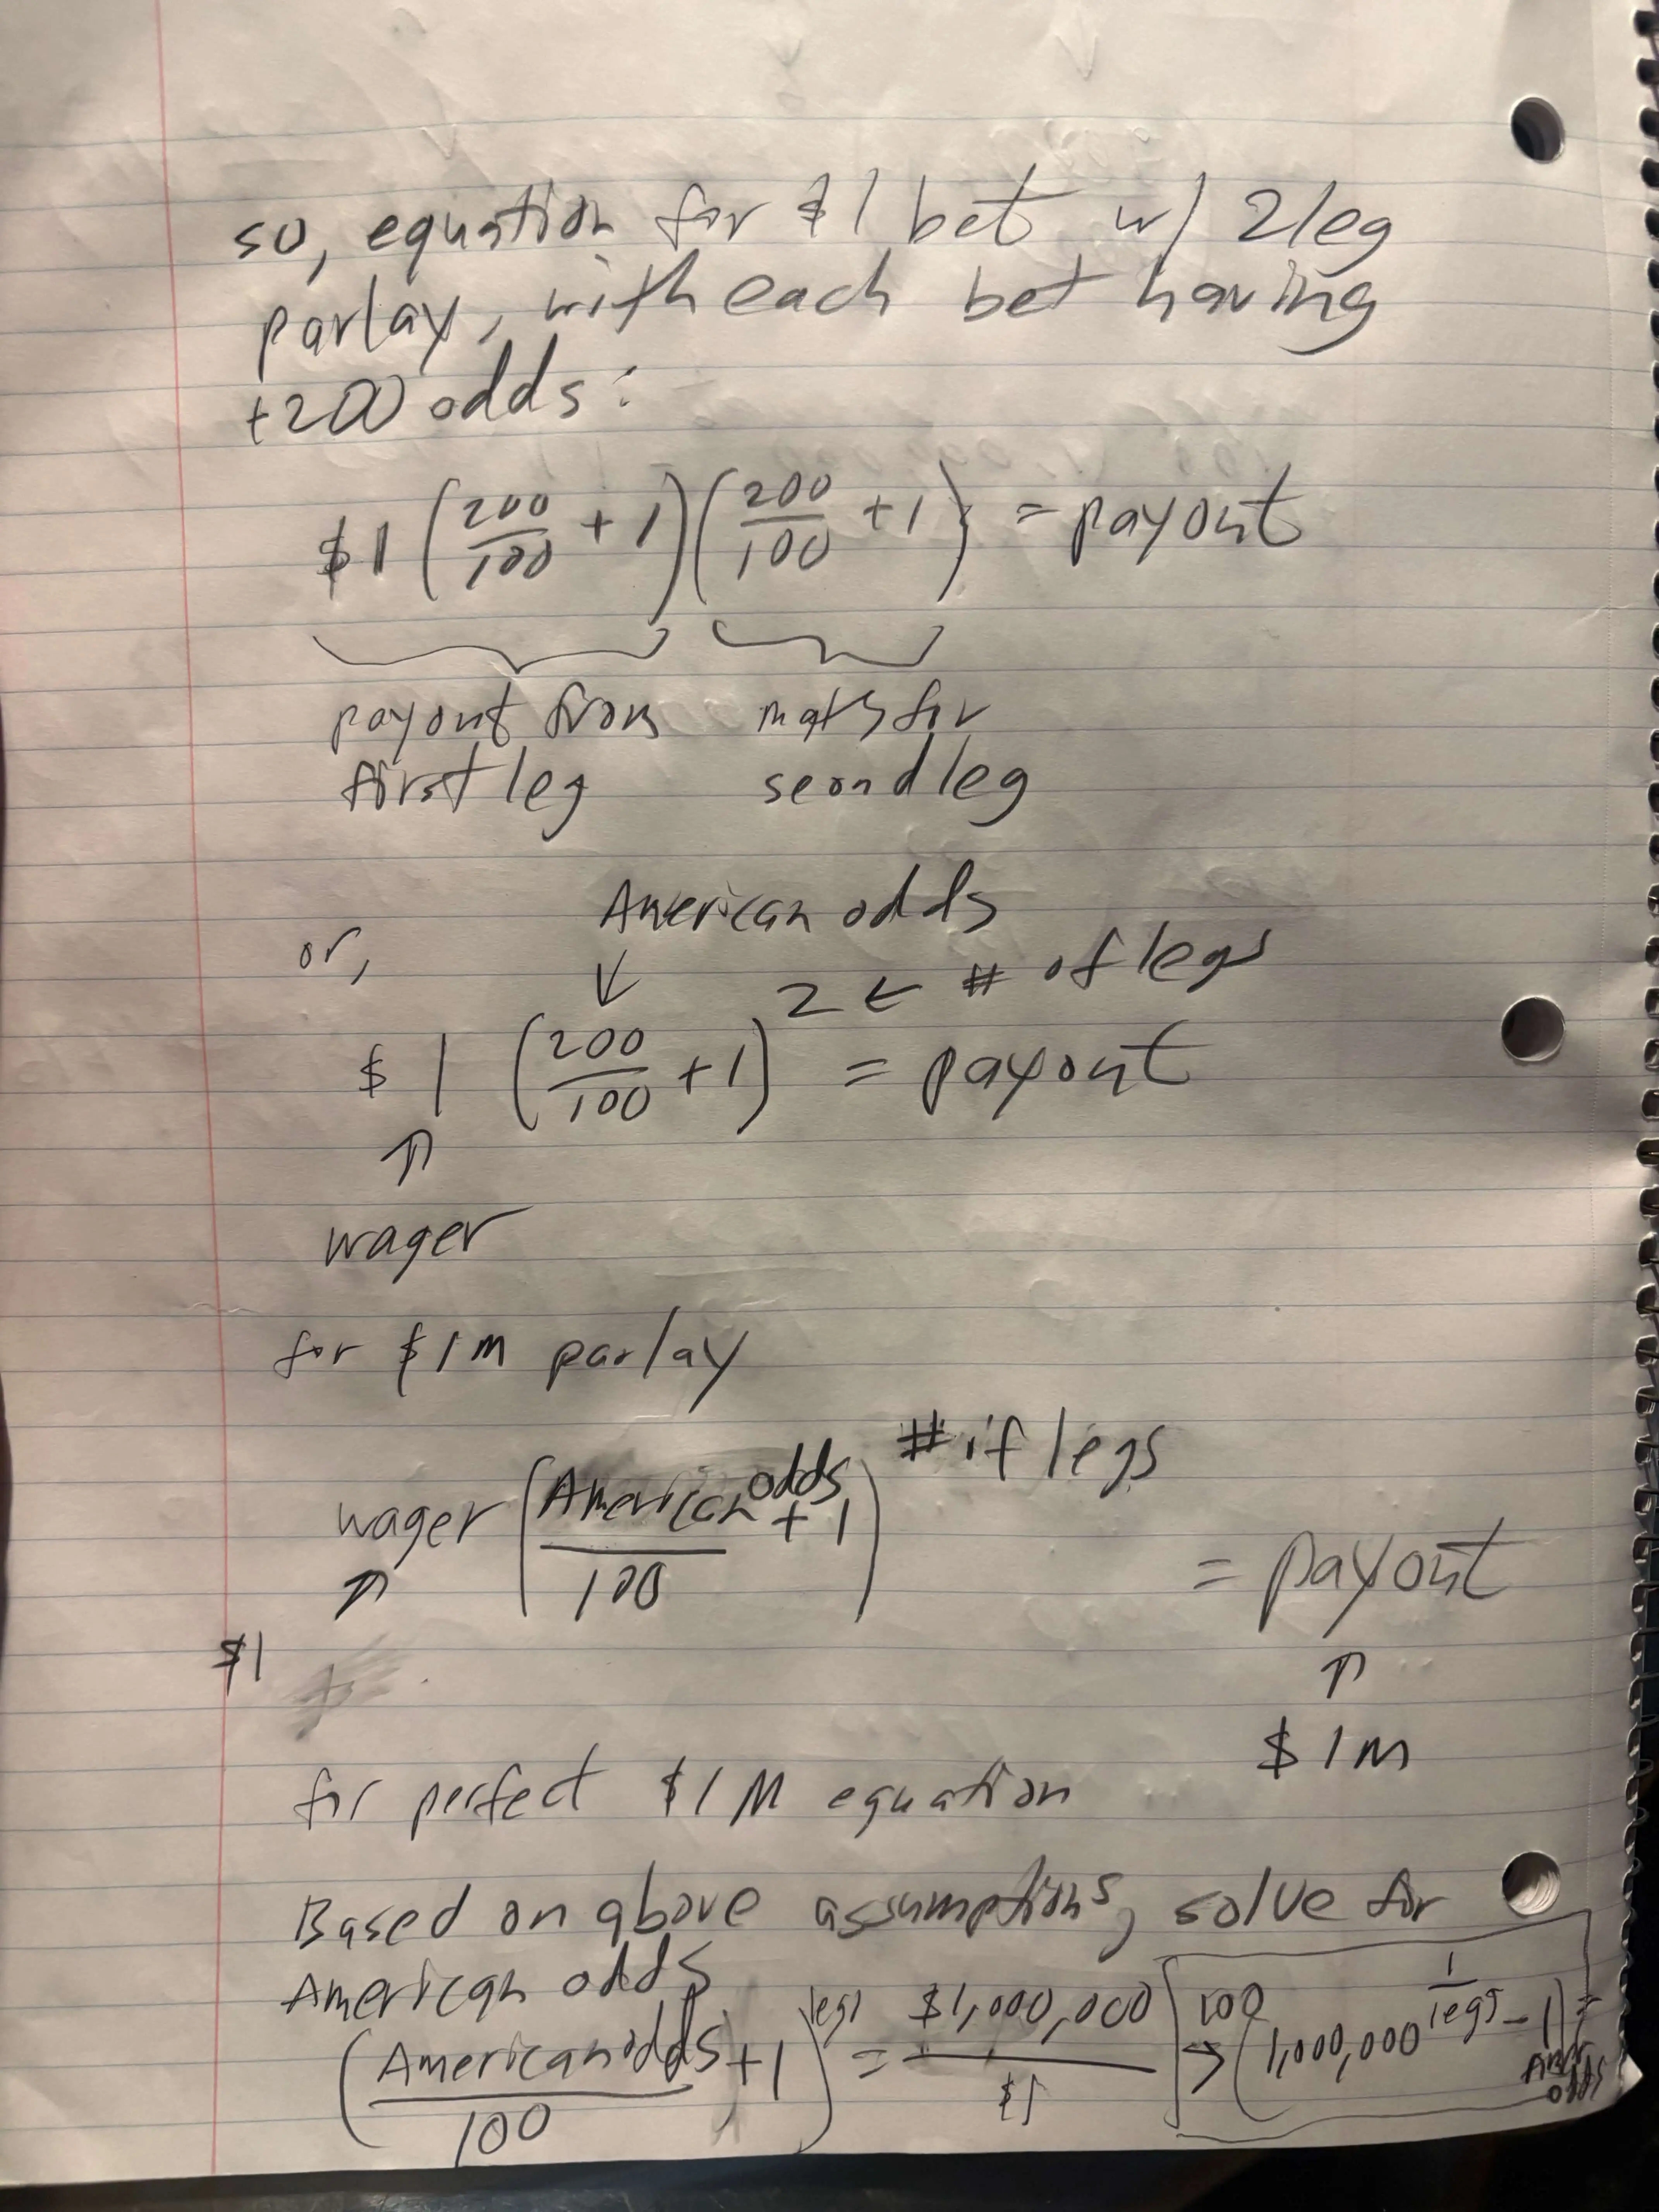 so, equation for $1 bet w/ 2leg
parlay, with each bet having
+200 odds:
$1 (200/100 + 1)(200/100 + 1) = payout
payout from maths for
first leg seond leg
American odds
or, ↓ 2 ← # of legs
$ 1 (200/100 + 1) = payout
↑
wager
for $1M parlay
# if legs
wager (American odds/100 + 1) = payout
↑ ↑
$1 $1M
for perfect $1M equation
Based on above assumptions, solve for
American odds
(American odds/100 + 1)^legs = $1,000,000/$1 → 100 (1,000,000^(1/legs) - 1) = Amer odds